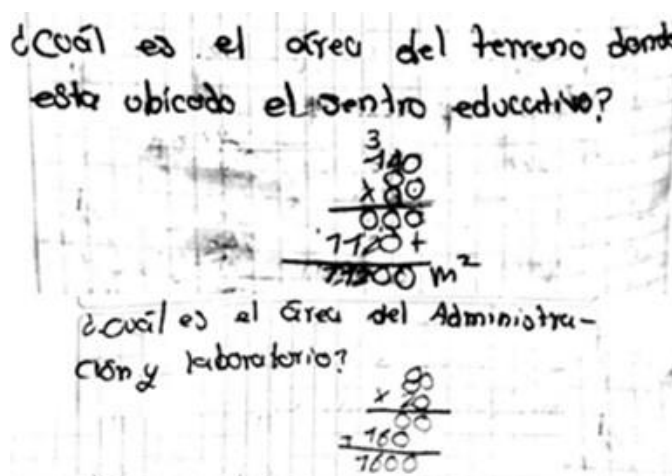 ¿Cuál es el área del terreno donde
esta ubicado el sentro educativo?
3
140
x 80
000
1120+
11200 m²
¿Cuál es el área del Administra-
ción y laboratorio?
80
x 20
00
+ 160
1600